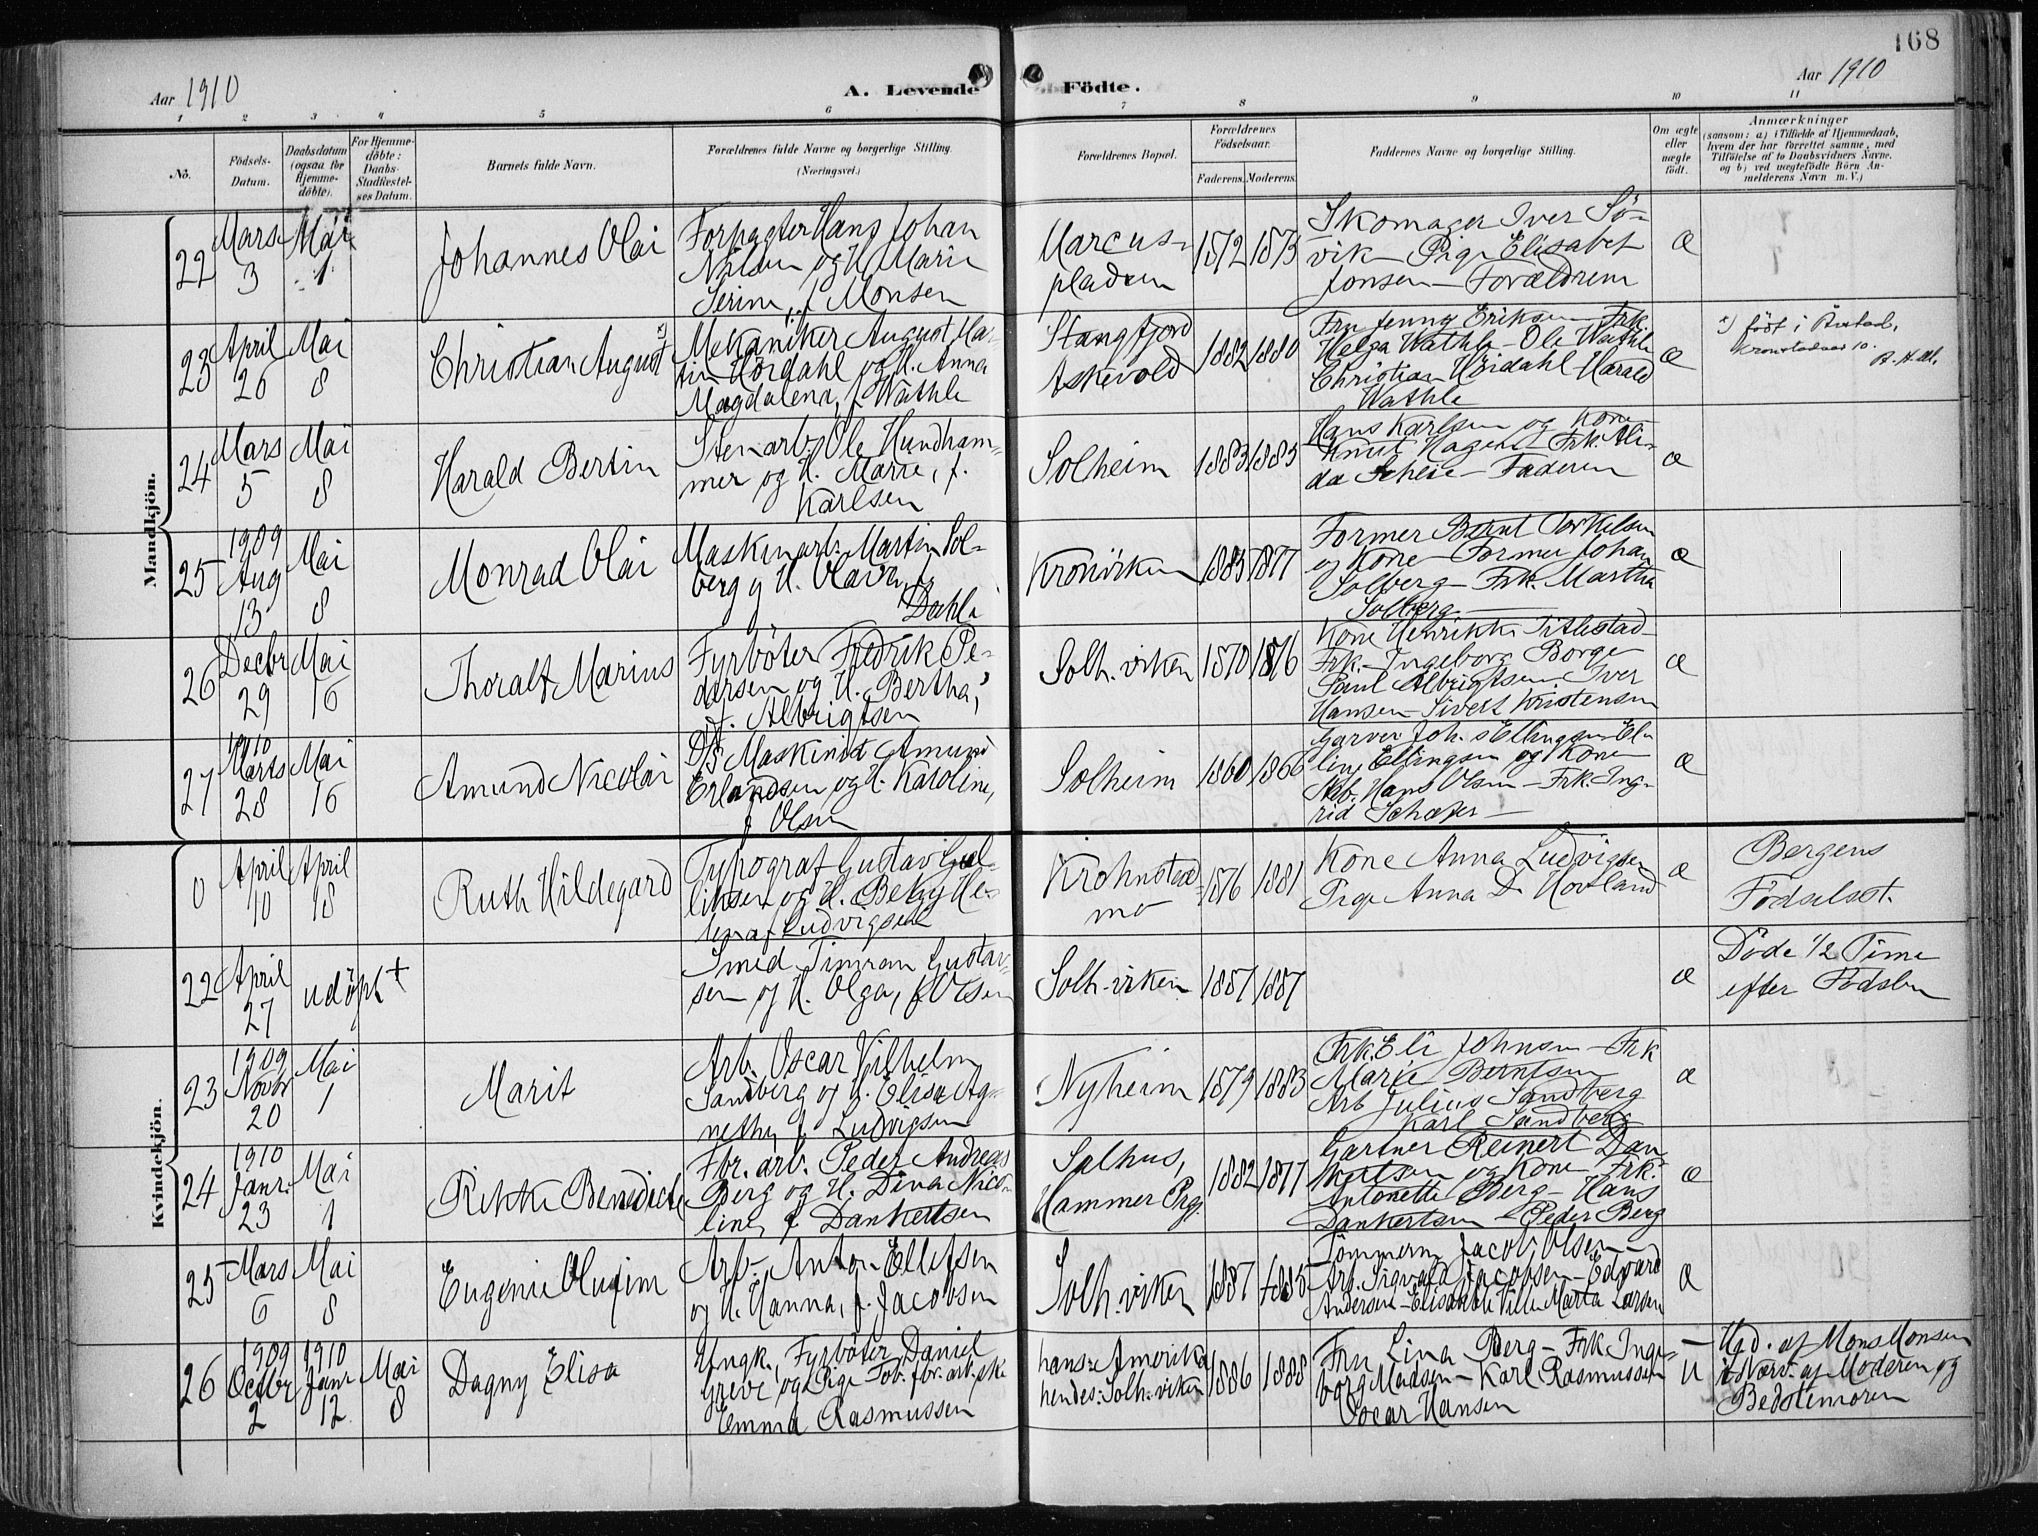 168
Aar 1910
A. Levende Födte.
Aar 1910
1 2 3 4 5 6 7 8 9 10 11
No.
Födsels-
Datum.
Daabsdatum
(ogsaa for
Hjemme-
döbte).
For Hjemme-
döbte:
Daabs-
Stadfæstel-
ses Datum.
Barnets fulde Navn.
Forældrenes fulde Navne og borgerlige Stilling
(Næringsvei.)
Forældrenes Bopæl.
Forældrenes
Födselsaar.
Faderens. Moderens.
Faddernes Navne og borgerlige Stilling.
Om ægte
eller
uægte
födt.
Anmærkninger
(saasom: a) i Tilfælde af Hjemmedaab,
hvem der har forrettet samme, med
Tilföielse af to Daabsvidners Navne,
og b) ved uægtefödte Börn An-
melderens Navn m. V.)
Mandkjön.
22
Mars
3
Mai
1
Johannes Olai
Forpagter Hans Johan
Nilsen og H. Marie
Serine, f. Monsen
Marcus-
pladsen
1872 1873
Skomager Iver Sö-
vik - Pige Elisabet
Jonsen - Forældrene
æ
23
April
26
Mai
8
Christian August x)
Mekaniker August Mar-
tin Hördahl og H. Anna
Magdalena, f. Wathle
Stangfjord
Askevold
1882 1880
Fru Jenny Eriksen - Frk.
Helga Wathle - Ole Wathle
Christian Hördahl - Harald
Wathle
æ
x) född i Årstad,
24
Mars
5
Mai
8
Harald Bertin
Stenarb. Ole Hundham-
mer og H. Marie, f.
Karlsen
Solheim
1883 1885
Hans Karlsen og Kone
Knut Hagen - Frk. Ali-
da Schlie - Faderen
æ
25
1909
Aug
13
Mai
8
Monrad Olai
Maskinarb. Martin Sol-
berg og H. Olava, f.
Dahle
Kronviken
1885 1877
Former Bernt Torkelsen
og Kone - Former Johan
Solberg - Frk. Martha
Solberg
æ
26
Decbr
29
Mai
16
Thoralf Marius
Fyrböter Fredrik Pe-
dersen og H. Bertha,
f. Albrigtsen
Solh. viken
1870 1876
Kone Henrikke Titlestad
Frk. Ingeborg Borge
Paul Albrigtsen Iver
Hansen - Sivert Kristensen
æ
27
1910
Marts
28
Mai
16
Amund Nicolai
D/S Maskinist Amund
Erlandsen og H. Karoline,
f. Olsen
Solheim
1860 1866
Garver Johs Ellingsen El-
ling Ellingsen og Kone
Skb. Hans Olsen - Frk. Ing-
rid Schafer -
æ
Kvindekjön.
0
April
10
April
18
Ruth Hildegard
Typograf Gustav Gul-
liksen og H. Betzy He-
lena f Ludvigsen
Krohnsted
mo
1876 1881
Kone Anna Ludvigsen
Pige Anna D. Hovland
æ
Bergens
Födselsst.
22
April
27
udöpt +
Smed Timran Gustav-
sen og H. Olga, f. Olsen
Solh. viken
1887 1887
æ
Döde 1/2 Time
efter Födslen
23
1909
Novbr
20
Mai
1
Marit
Arb. Oscar Vilhelm
Sandberg og H. Elisa Ag-
nethe, f. Ludvigsen
Nyheim
1879 1883
Frk. Eli Johnsen - Frk
Marie Berntsen
Arb Julius Sandberg
Karl Sandberg
æ
24
1910
Janr.
23
Mai
1
Rikke Benedicte
Fbr. arb. Peder Andreas
Berg og H. Dina Nico-
line, f. Dankertsen
Salhus,
Hammer Prgj.
1882 1877
Gartner Reinert Dan
kertsen og Kone - Frk.
Antonette Berg - Hans
Dankertsen - Peder Berg
æ
25
Mars
6
Mai
8
Eugenie
Arb. Anton Ellefsen
og H. Hanna, f. Jacobsen
Solh. viken
1887 1885
Tömmerm. Jacob Olsen -
Arb. Sigvald Jacobsen - Edvard
Andersen - Elisabeth Ville Marta Larsen
æ
26
1909
Octbr
2
1910
Janr
12
Mai
8
Dagny Elisa
Ungk., Fyrböter Daniel
Greve og Pige Tob. fbr. arb.ske
Emma Rasmussen
hans: Amerika
hendes: Solh. viken
1886 1888
Fru Lina Berg - Frk. Inge-
borg Madsen - Karl Rasmussen
Oscar Hansen
u
Hgd. af Mons Monsen
i Nærv. af Moderen og
Bedstemoren